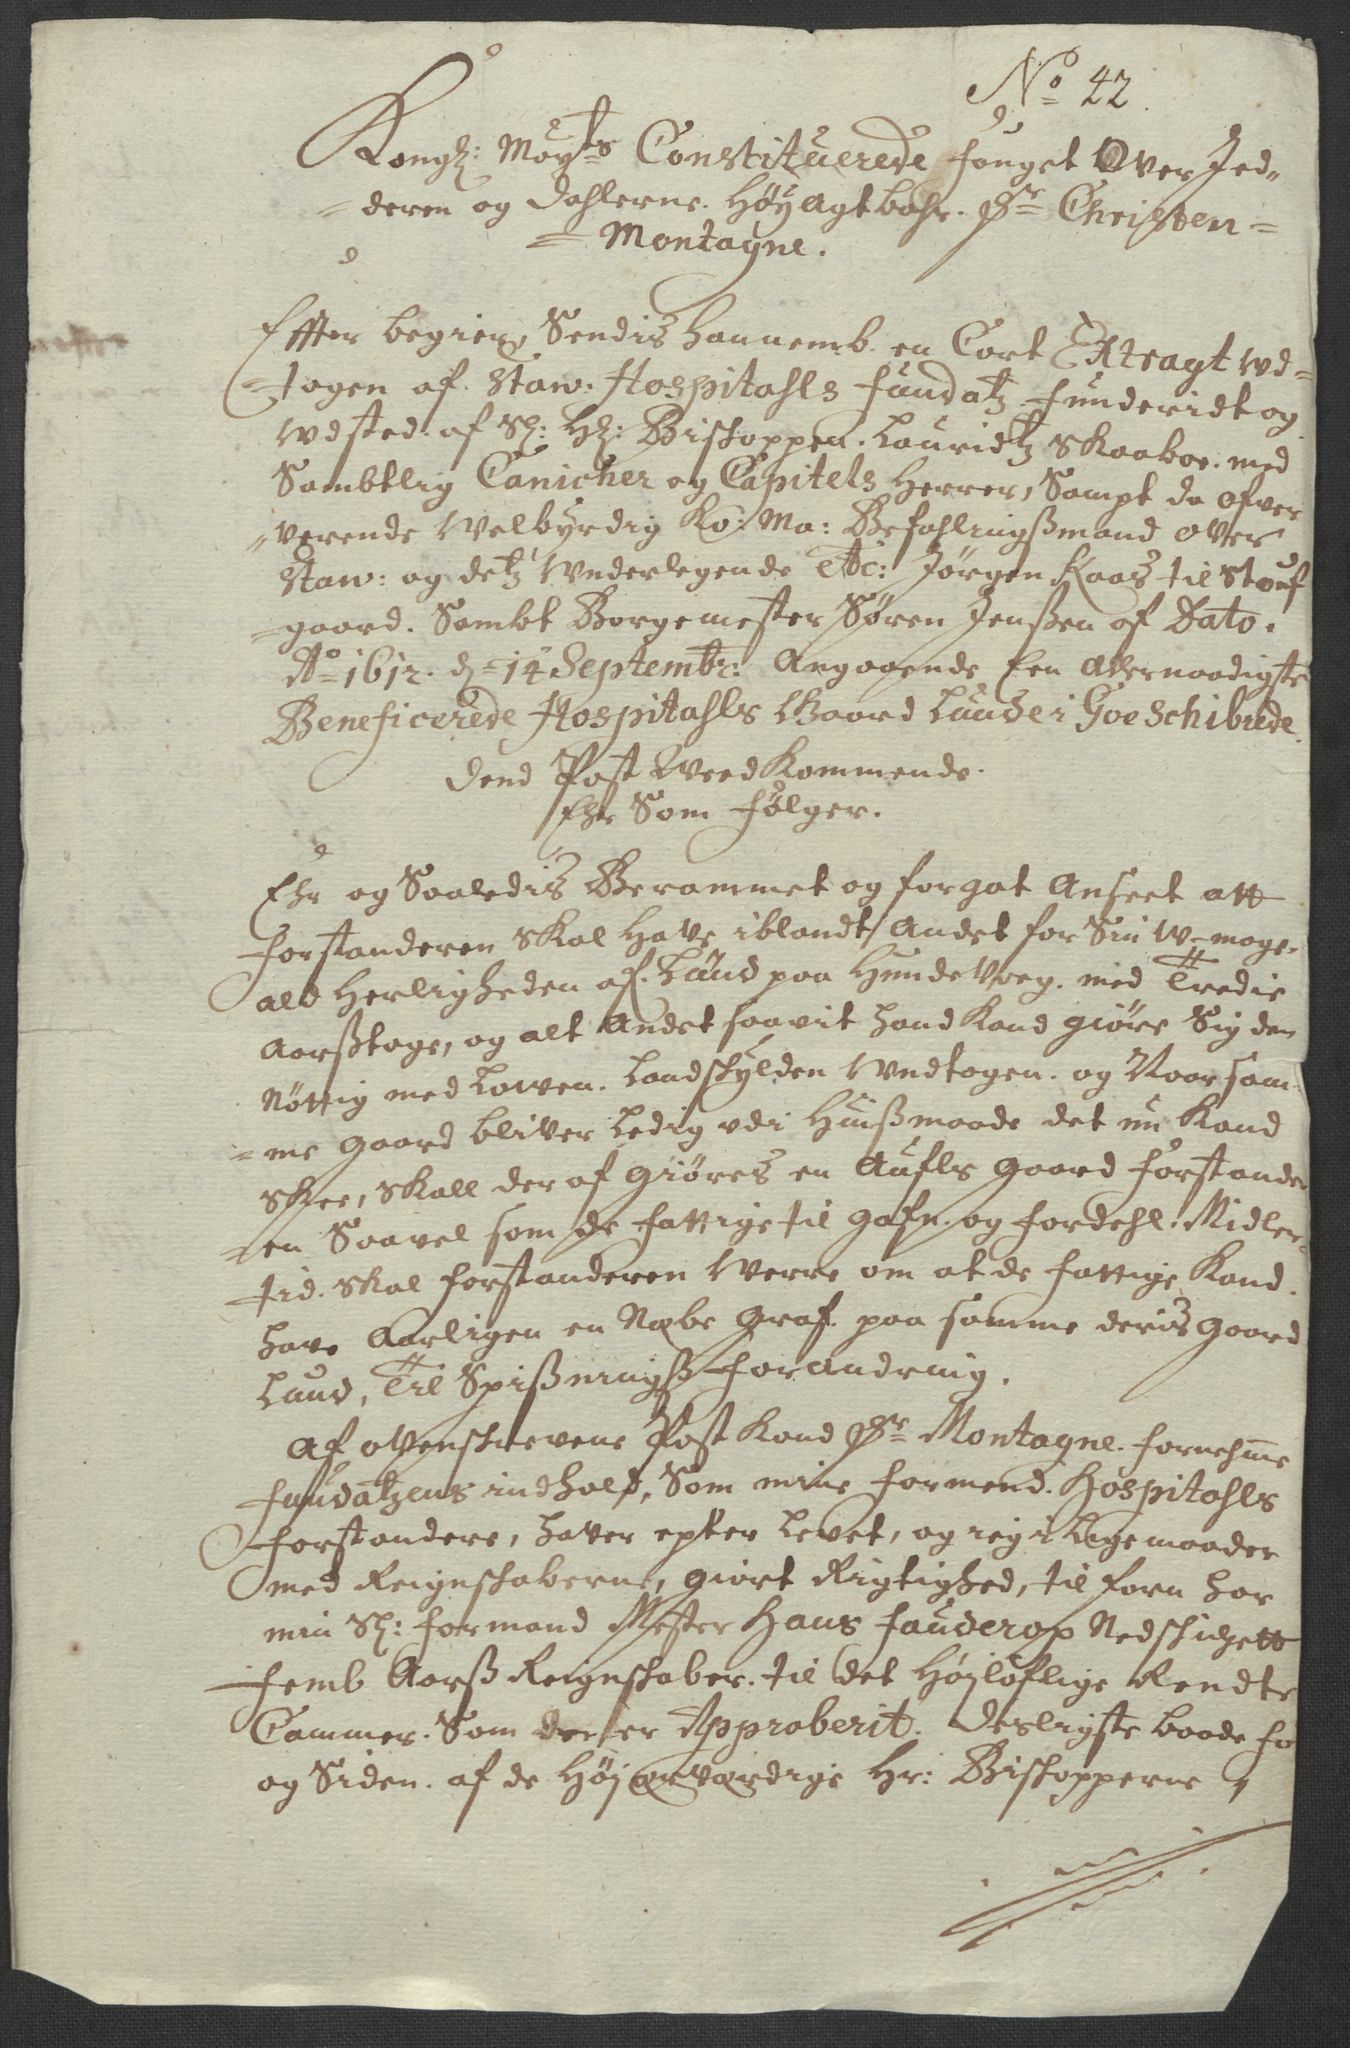 No 42
Kongl: Mayts Constituerede fougct Over Jed„
=deren og Dahlerne. Høyagtbahr. Sr Christen=
=Montagne.
Effter begier, Sendis hannemb. en Cort Extragt wd=
=tagen af. Staw: Hospitahls fundatz funderidt og
wdsted. af Sl: Hr: Bischoppen. Lauridtz Skaaboe. med
Sambtlig Canicher og Capitels Herrer, Sampt da ofver
„verende Welbyrdig Ko: Ma: Befahlingßmand over
Staw: og detz Wnderlegende etc: Jørgen Kaas til Stouf
=gaard. Sambt Borgemester Søren Jenßen af Dato.
Ao 1612. d= 14 Septembr: Angaaende Een Allernaadigste
Beneficerede Hospitahls Gaard Lunde i Goeschibrede
Dend Post Wved Kommende.
Ehr Som følger.
Ehr og Saaledis Berammet og for got Anseet att
forstanderen skal Have iblandt Andet for Sin W=mage,
ald Herligheden af. Lund paa Hundevoeg. med Tredie
Aarßtage, og alt Andet saavit hand Kand giøre Sig den
Nøttig med Lowen. Landskylden Wndtagen. og Naar sam„
=me gaard bliver Ledig udi Huißmaade det nu Kand
Skee, skall der af giøres en Aufls gaard forstander
=en Saavel som de fattige til gafn. og fordehl. Midler=
tid. skal forstanderen Werre om at de fattige Kand
have Aarligen en Nøbe Graf. paa samme deris gaard
Lund, Til Spißningß forandring.
Af ovenskrevene Post Kand Sr Montagne. fornehme
fundatzens indhold, Som mine formend. Hospitahls
forstandere, haver epter Levet, og ieg i Lige maader
med Reignskaberne, giort Rigtighed, til forn har
min Sl: formand Mester Hans fauderop Nedskichett
femb Aarß Reignskaber. til det Højløflige Rendte
Cammer. Som der er Approberit. Desligste baade fo
og Siden. af de Højærværdige Hr: Bischopperne,